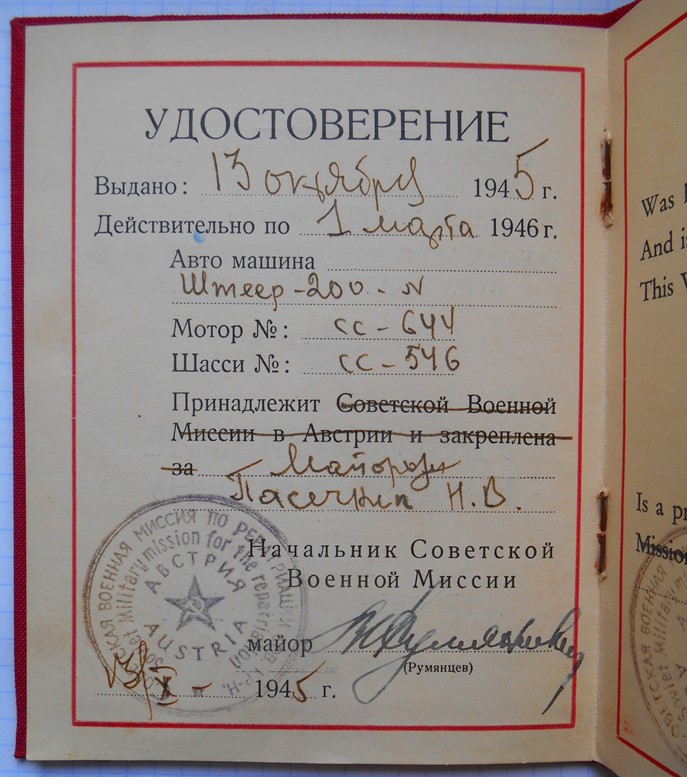 УДОСТОВЕРЕНИЕ
Выдано: 13 октября 1945 г.
Действительно по 1 марта 1946 г.
Авто машина
Штеер-200-N
Мотор №: сс-644
Шасси №: сс-546
Принадлежит Советской Военной
Миссии в Австрии и закреплена
за Майору
Пасечник Н.В.
Начальник Советской
Военной Миссии
майор
(Румянцев)
13/X - 1945 г.
ВОЕННАЯ МИССИЯ ПО
Military mission for the repatriation
АВСТРИЯ
AUSTRIA
Was
And
This
Is a
Mission